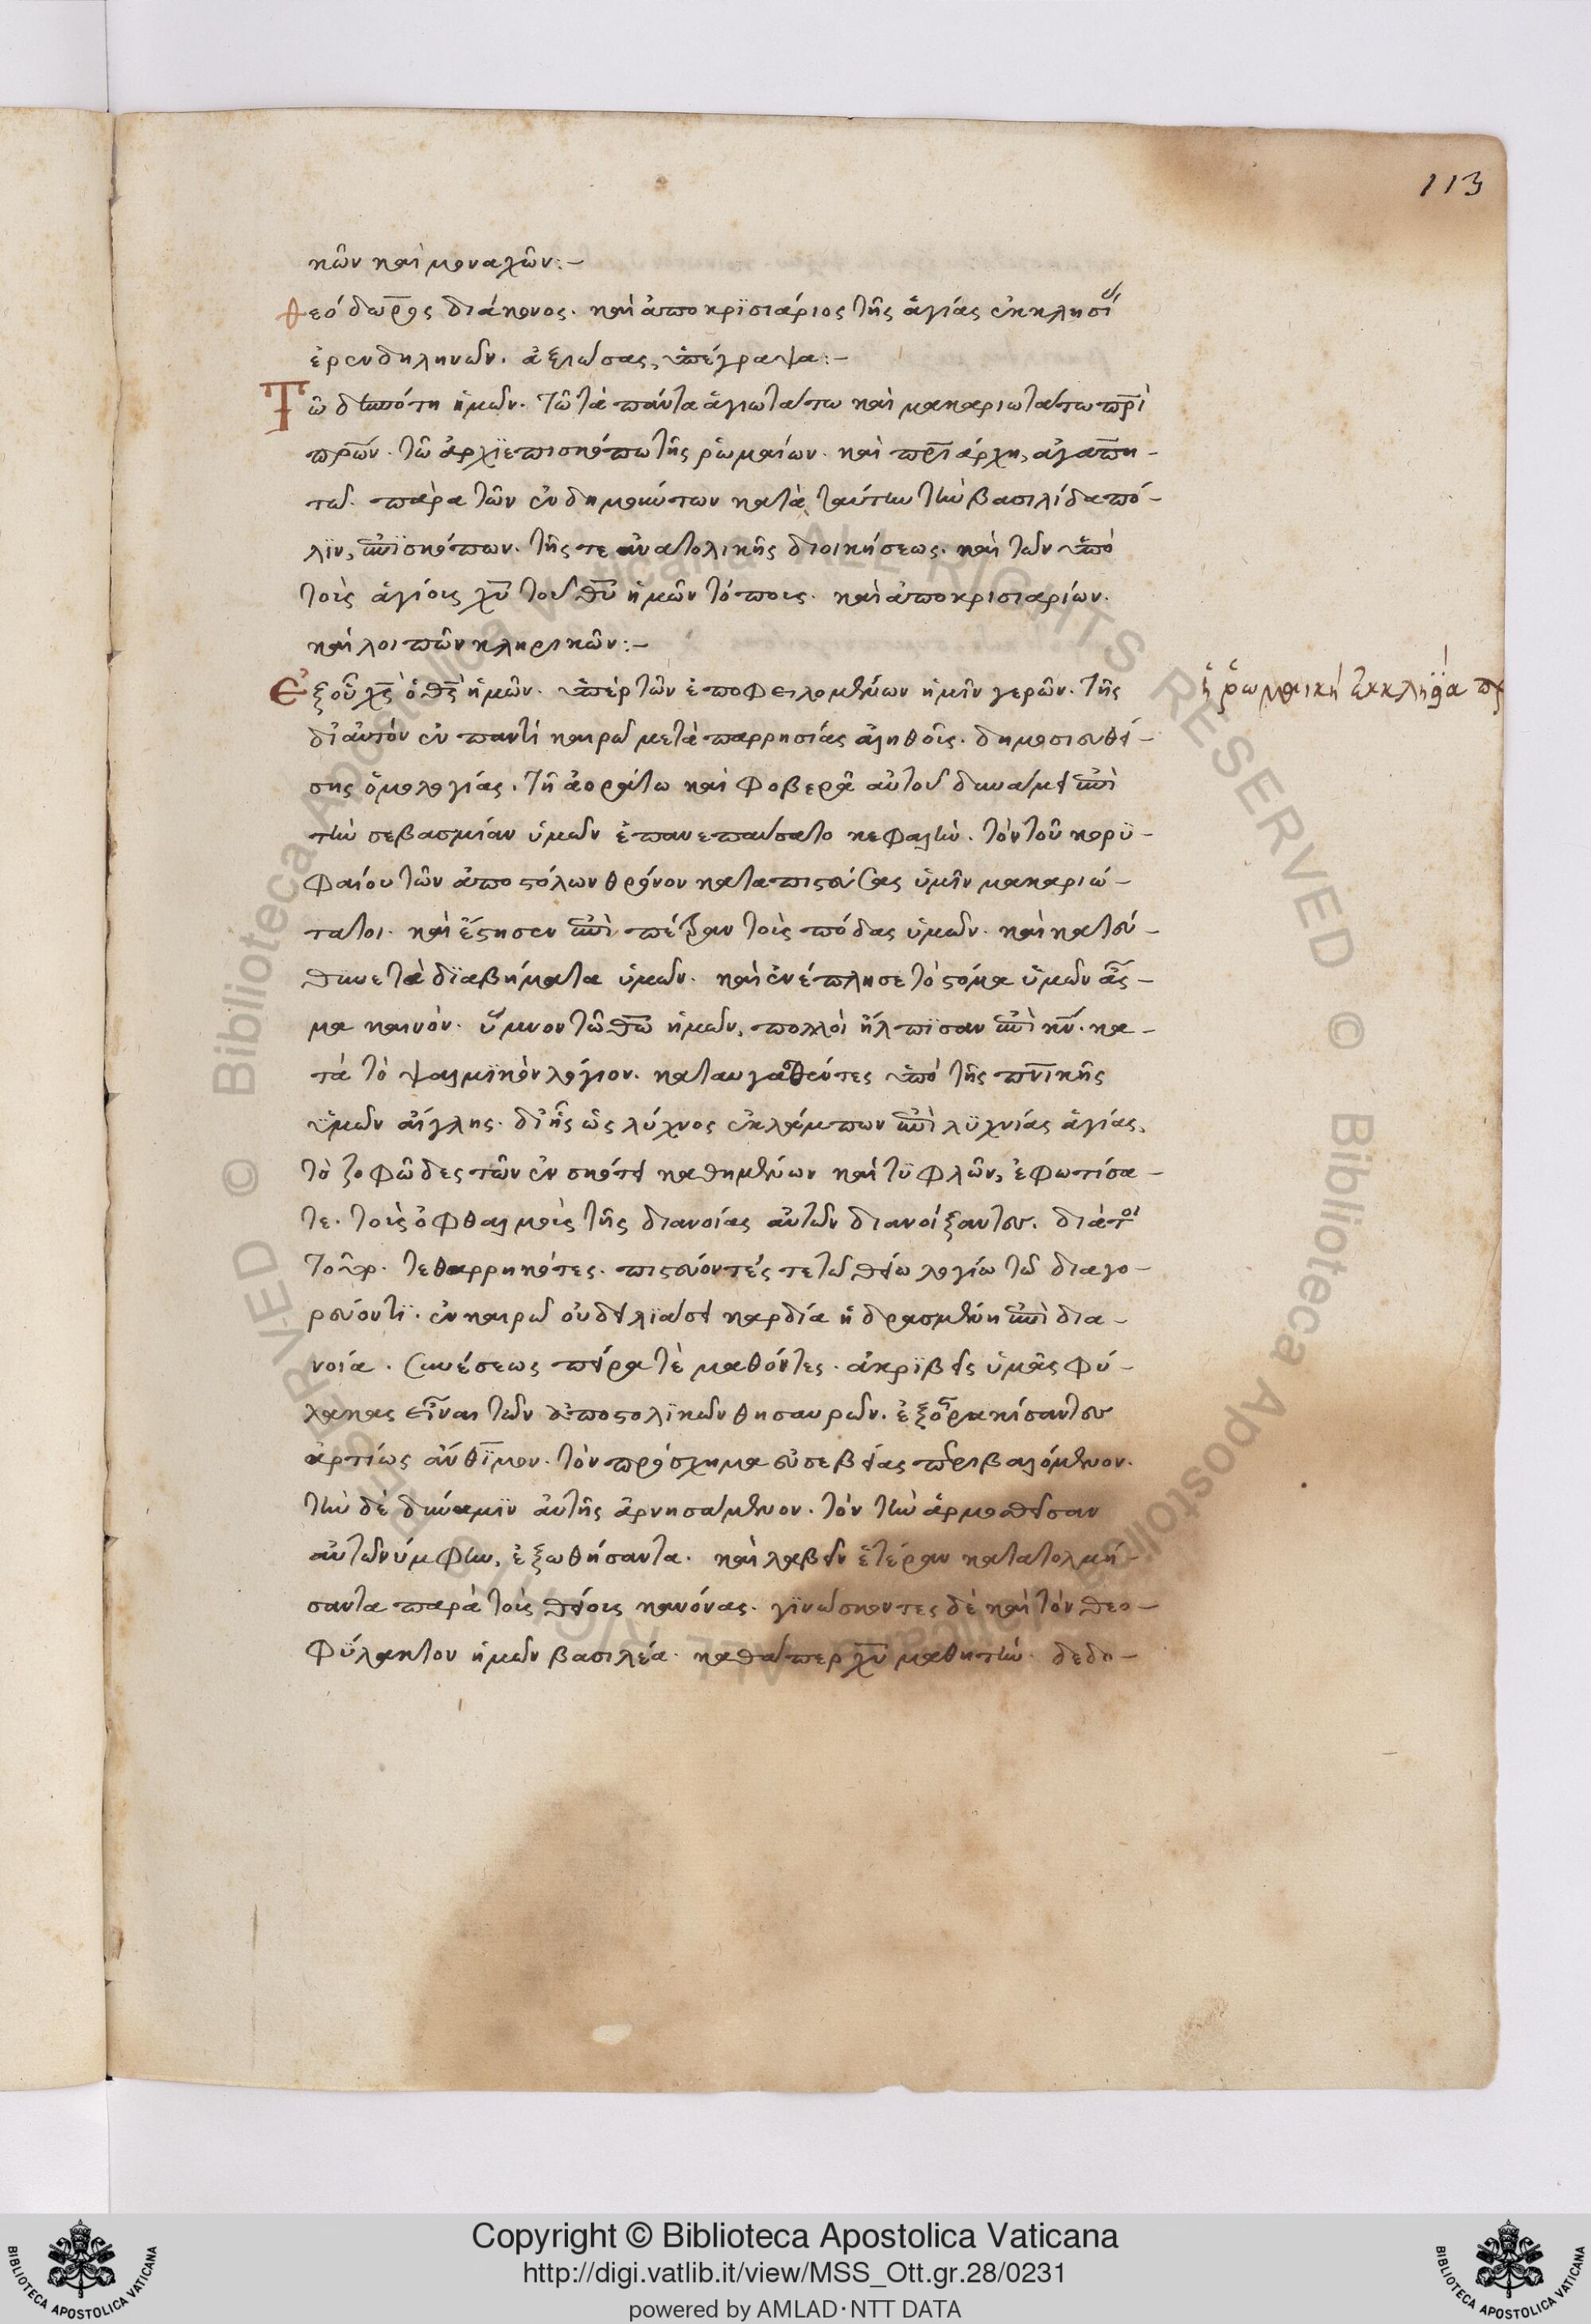 113
κῶν καὶ μοναχῶν:–
θεόδωρος διάκονος. καὶ ἀποκρϊσιάριος τῆς ἁγίας ἐκκλησί
ἐρενδηληνῶν. ἀξιώσας, ὑπέγραψα:–
Τῶ δεσπότη ἡμῶν. τῶ τὰ πάντα ἁγιωτάτω καὶ μακαριωτάτω πρ̅ὶ
πρ̅ων. τῶ ἀρχϊεπισκόπω τῆς ῥωμαίων. καὶ πρ̅ιάρχη, ἀγαπη–
τῶ. παρὰ τῶν ἐνδημούντων κατὰ ταύτην τὴν βασιλίδα πό–
λϊν, ἐπϊσκόπων. τῆς τε ἀνατολικῆς διοικήσεως. καὶ τῶν ὑπὸ
τοῖς ἁγίοις χ̅υ τοῦ θ̅υ ἡμῶν τόποις. καὶ ἀποκρισιαρίων.
καὶ λοιπῶν κληρικῶν:–
ἐξ οὗ χ̅ς ὁ θ̅ς ἡμῶν. ὑπὲρ τῶν ἐποφειλομένων ἡμῖν γερῶν. τῆς
δι αὐτὸν ἐν παντὶ καιρῶ μετὰ παρρησίας ἀληθοῦς. δημοσιευθεί–
σης ὁμολογίας. τῆ ἀοράτω καὶ φοβερᾶ αὐτοῦ δυνάμει ἐπὶ
τὴν σεβασμίαν ὑμῶν ἐπανεπαύσατο κεφαλὴν. τὸν τοῦ κορϋ–
φαίου τῶν ἀποστόλων θρόνον καταπιστεύσας ὑμῖν μακαριώ–
τατοι. καὶ ἔστησεν ἐπὶ πέτραν τοὺς πόδας ὑμῶν. καὶ κατεύ–
θυνε τὰ δϊαβήματα ὑμῶν. καὶ ἐνέπλησε τὸ στόμα ὑμῶν ἆσ–
μα καινὸν. ὕμνον τῶ θ̅ω ἡμῶν, πολλοὶ ἤλπϊσαν ἐπὶ κ̅ν. κα–
τὰ τὸ ψαλμϊκὸν λόγιον. καταυγασθέντες ὑπὸ τῆς πν̅ικῆς
ὑμῶν αἴγλης. δι ἧς ὡς λύχνος ἐκλάμπων ἐπὶ λϋχνίας ἁγίας,
τὸ ζοφῶδες τῶν ἐν σκότει καθημένων καὶ τϋφλῶν, ἐφωτίσα–
τε. τοὺς ὀφθαλμοὺς τῆς διανοίας αὐτῶν διανοίξαντες. διὰ τοι
τοῦτο. τεθαρρηκότες. πιστεύοντές τε τῶ θείω λογίω τῶ διαγο–
ρεύοντϊ. ἐν καιρῶ οὐ δειλϊάσει καρδία ἡδρασμένη ἐπὶ δια–
νοία. συνέσεως πεῖρα τὲ μαθόντες. ἀκρϊβεῖς ὑμᾶς φύ–
λακας εἶναι τῶν ἀποστολϊκῶν θησαυρῶν. ἐξοστρακίσαντες
ἀρτίως ἄνθϊμον. τὸν πρόσχημα εὐσεβείας περιβαλόμενον.
τὴν δὲ δύναμϊν αὐτῆς ἀρνησάμενον. τὸν τὴν ἁρμοθεῖσαν
αὐτῶ νύμφην, ἐξωθήσαντα. καὶ λαβεῖν ἑτέραν κατατολμή–
σαντα παρὰ τοὺς θείους κανόνας. γϊνώσκοντες δὲ καὶ τὸν θεο–
φϋλακτον ἡμῶν βασιλέα. καθάπερ χ̅υ μαθητὴν. δεδο–
ἡ ῥωμαικὴ ἐκκλησία
Copyright © Biblioteca Apostolica Vaticana
http://digi.vatlib.it/view/MSS_Ott.gr.28/0231
powered by AMLAD·NTT DATA